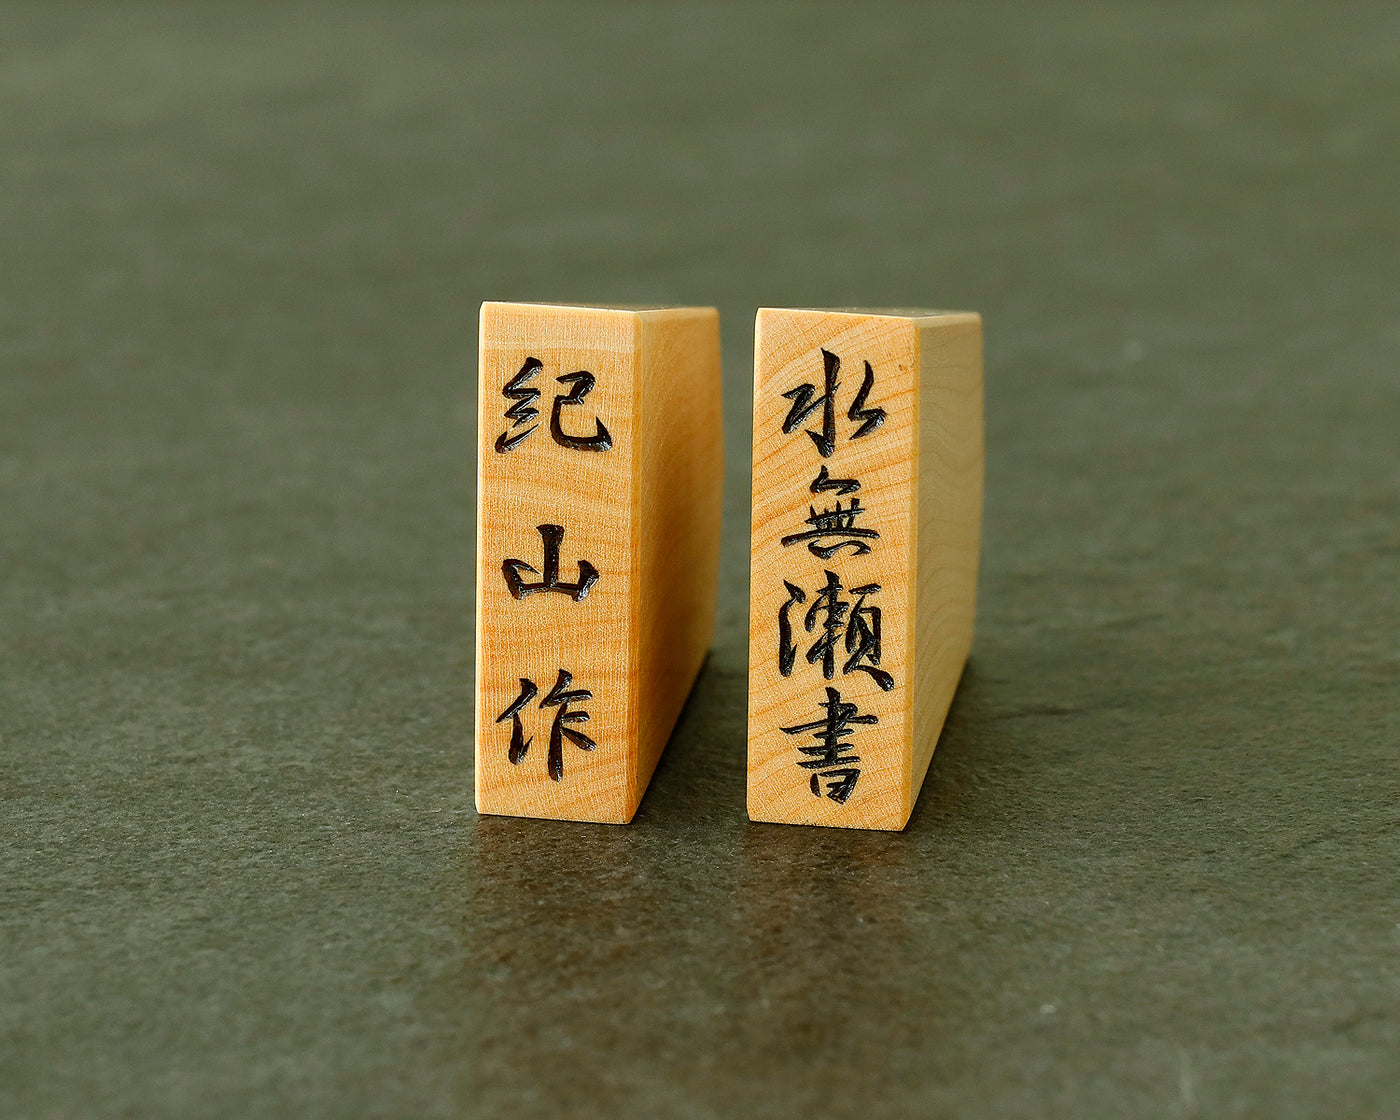 紀山作
水無瀬書